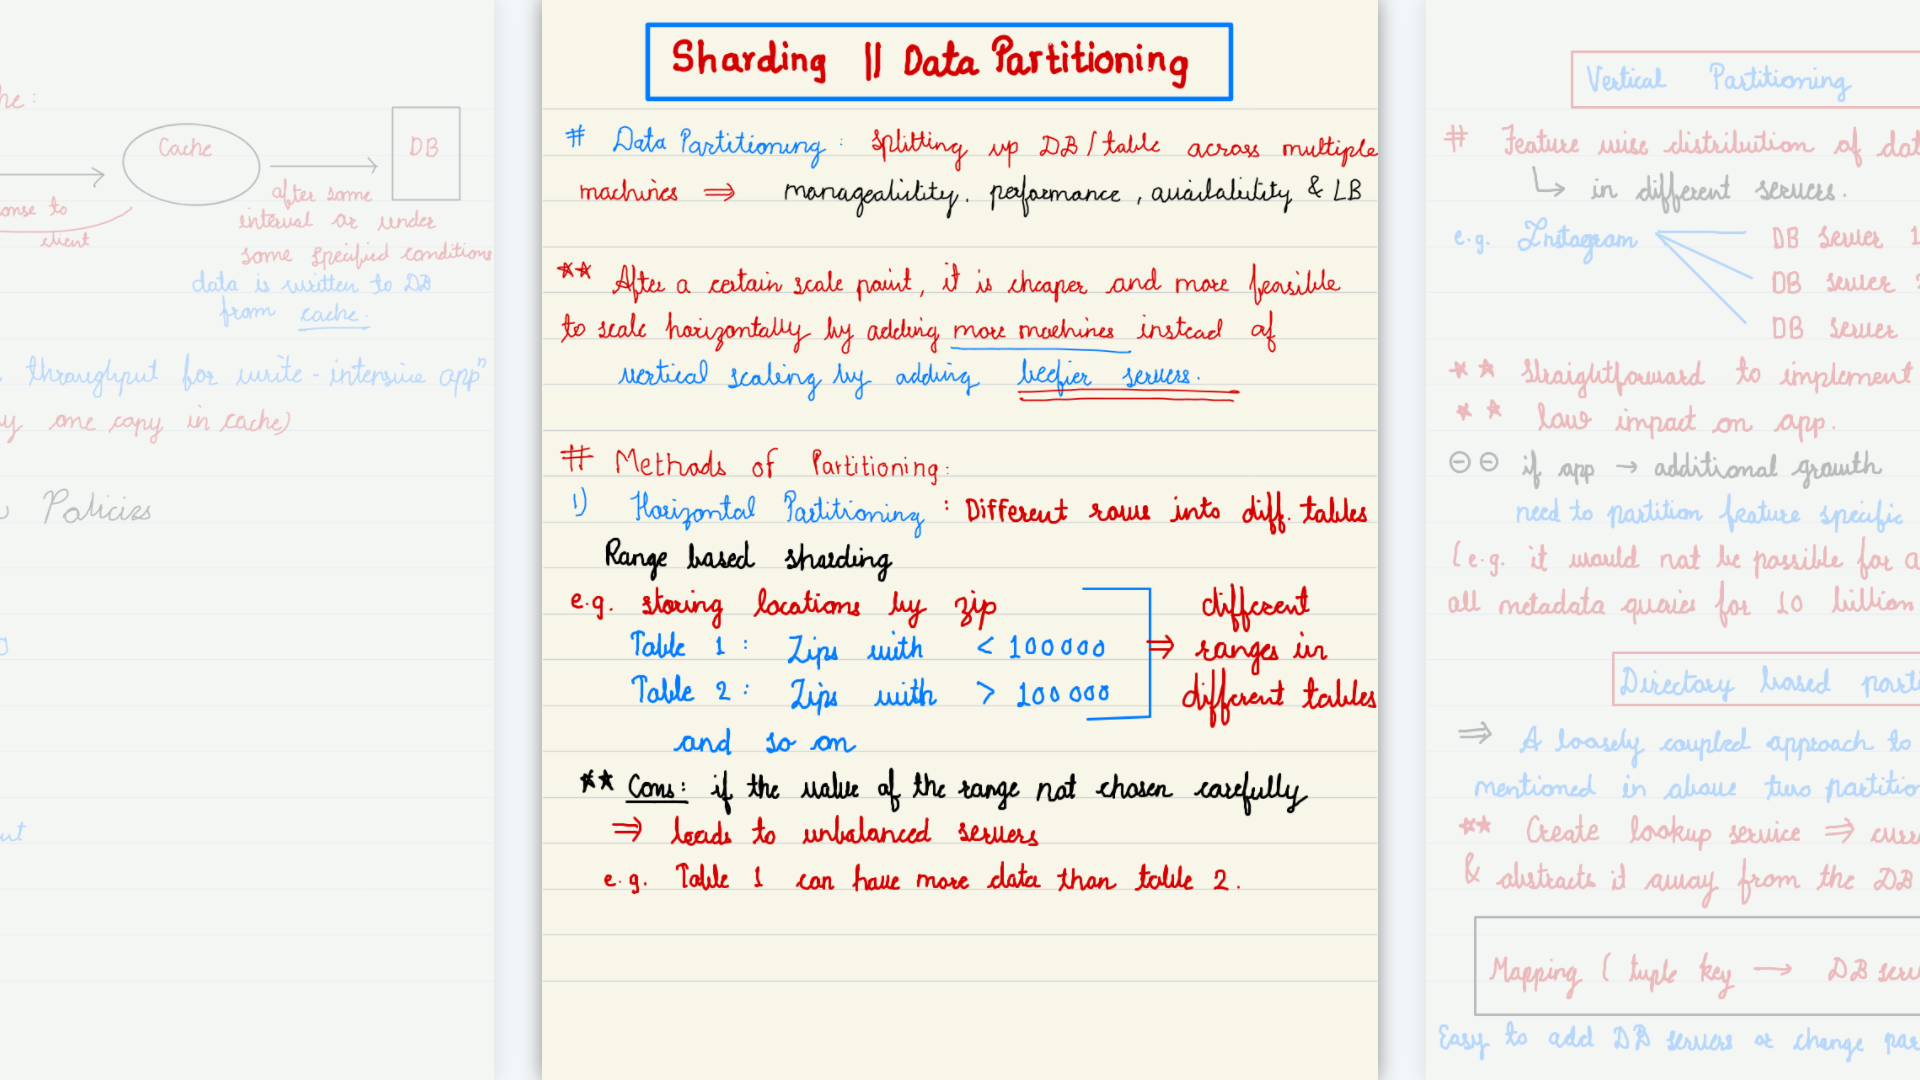 he:
Cache
DB
after some
onse to
interval or under
client
some specified conditions
data is written to DB
from cache.
throughput for write-intensive app"
y one copy in cache)
Policies
Sharding || Data Partitioning
# Data Partitioning: Splitting up DB/table across multiple
machines ⇒ manageability, performance, availability & LB
** After a certain scale point, it is cheaper and more feasible
to scale horizontally by adding more machines instead of
vertical scaling by adding beefier servers.
# Methods of Partitioning:
1) Horizontal Partitioning : Different rows into diff. tables
Range based sharding
e.g. storing locations by zip
Table 1: Zips with < 100000
Table 2: Zips with > 100000
⇒ different
ranges in
different tables
and so on
** Cons: if the value of the range not chosen carefully
⇒ leads to unbalanced servers
e.g. Table 1 can have more data than table 2.
Vertical Partitioning
# Feature wise distribution of dat
↳ in different servers.
e.g. Instagram
DB server 1
DB server 2
DB server
** Straightforward to implement
** low impact on app.
⊖⊖ if app → additional growth
need to partition feature specific
(e.g. it would not be possible for a
all metadata queries for 10 billion
Directory based parti
⇒ A loosely coupled approach to
mentioned in above two partitio
** Create lookup service ⇒ curr
& abstracts it away from the DB
Mapping (tuple key → DB serv
Easy to add DB servers or change par